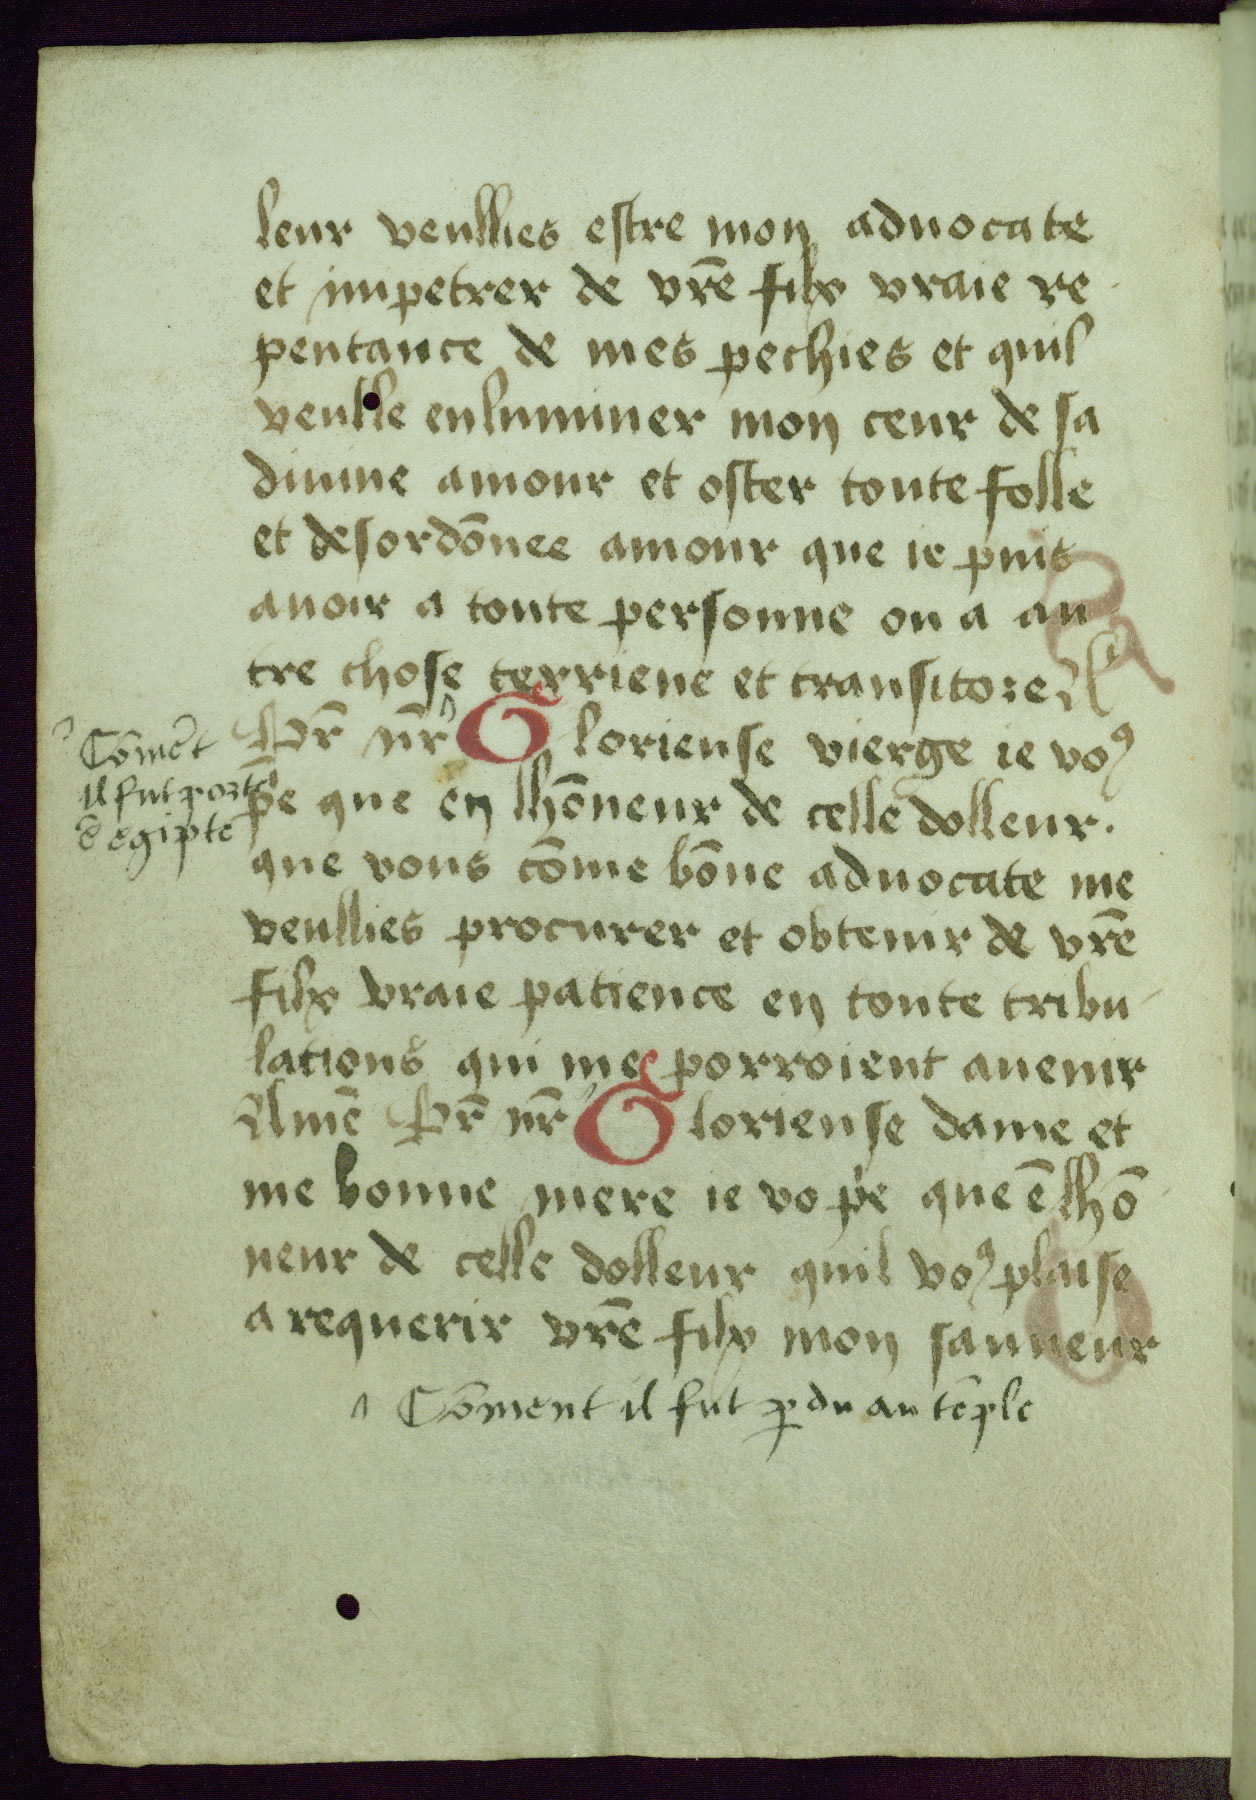 leur veullies estre mon aduocate
et impetrer de vr̄e filx vraie re
pentance de mes pechies et quil
veulle enluminer mon ceur de sa
diuine amour et oster toute folle
et desordōnee amour que ie puis
auoir a toute personne ou a au
tre chose terriene et transitore
Pr̄ nr̄ Glorieuse vierge ie voꝰ
pe que en lhōneur de celle dolleur.
que vous cōme bōne aduocate me
veullies procurer et obtenir de vr̄e
filx vraie patience en toute tribu
lations qui me porroient auenir
Amē Pr̄ nr̄ Glorieuse dame et
me bonne mere ie vo pe que ē lhō
neur de celle dolleur quil voꝰ plaise
a requerir vr̄e filx mon sauueur
Cōment il fut ꝑdu au tēple
Cōmēt
il fut porte
ē egipte